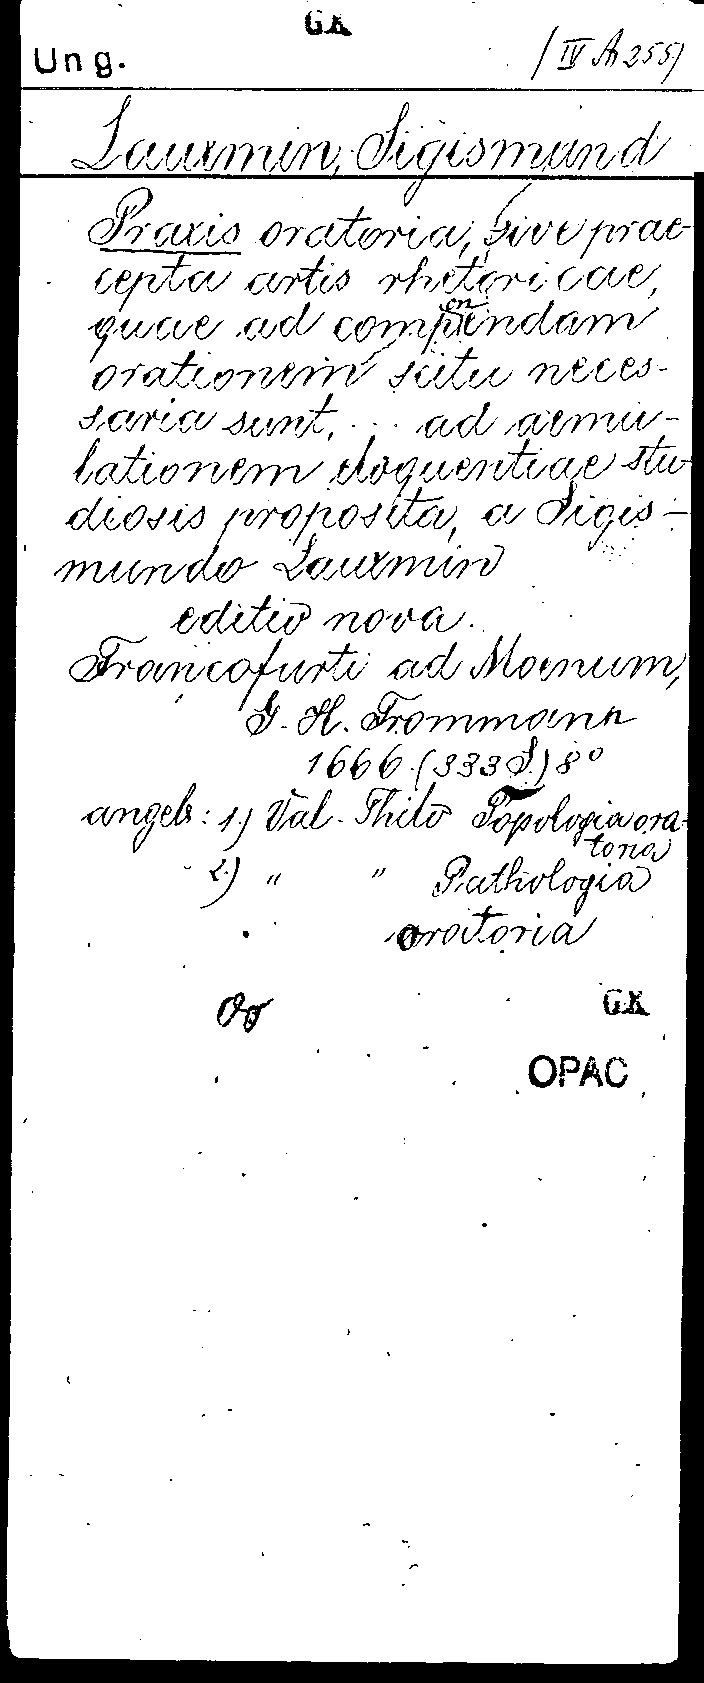 GK
Ung.
(IV Ah 255)
Lauxmin, Sigismund
Praxis oratoria, sive prae-
cepta artis rhetoricae,
quae ad componendam
orationem scitu neces-
saria sunt, ... ad aemu-
lationem eloquentiae stu-
diosis proposita, a Sigis-
mundo Lauxmin
editio nova.
Francofurti ad Moenum,
G. H. Frommann
1666 (333 S) 8°
angeb: 1.) Val. Thilo Topologia ora-
toria
2.) " " Pathologia
oratoria
GK
OPAC